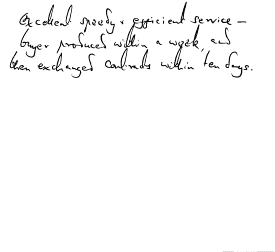 Excellent speedy & efficient service –
buyer produced within a week, and
then exchanged contracts within ten days.